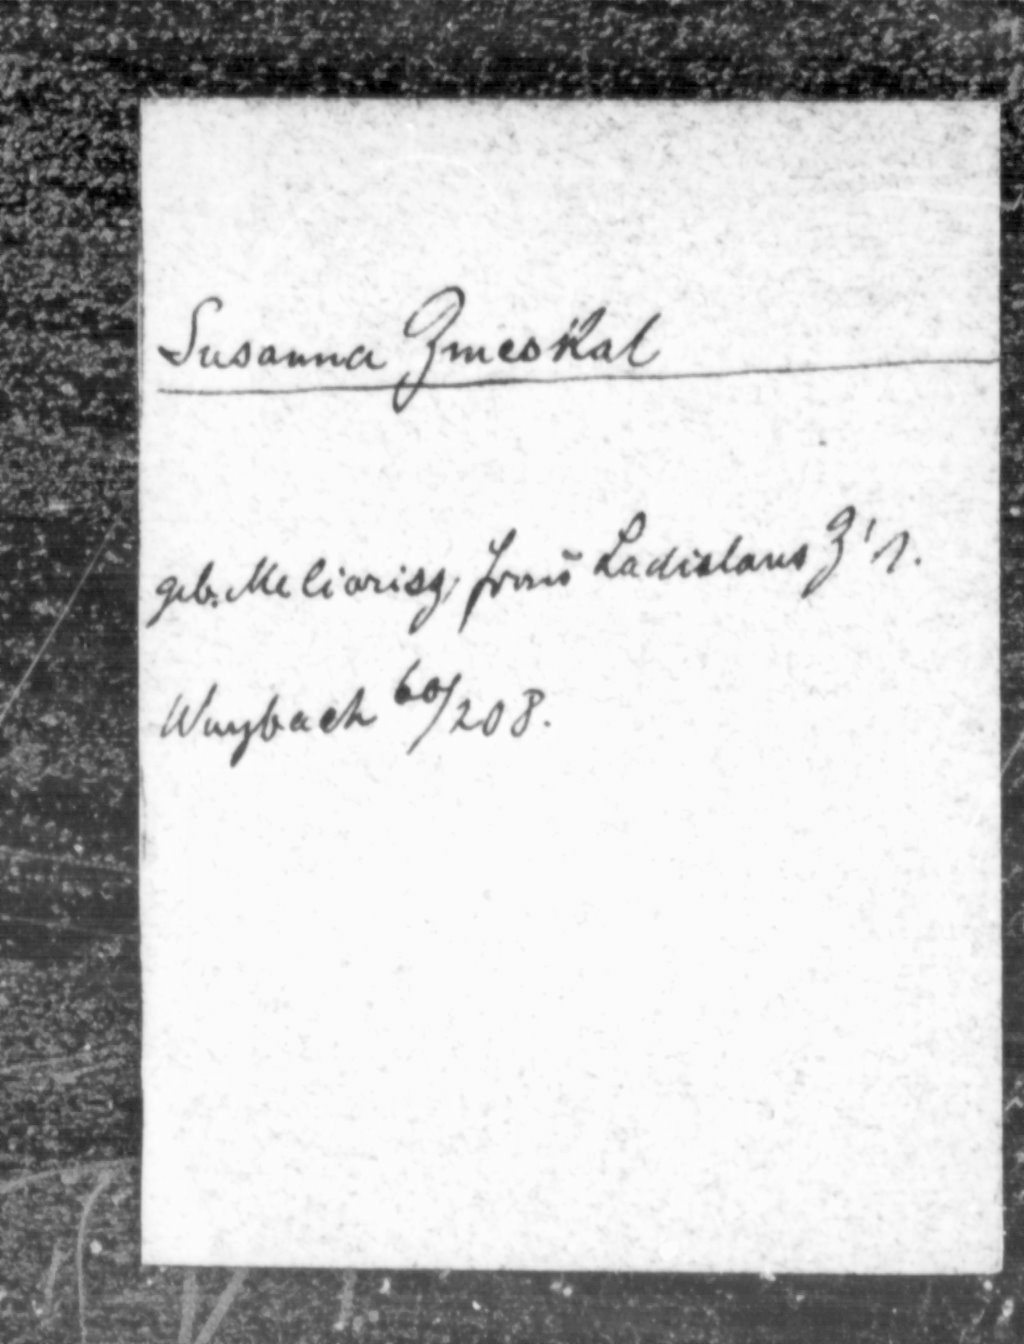 Susanna Zmeskal
geb. Meliorisz, Frau Ladislaus Z's.
60/208.